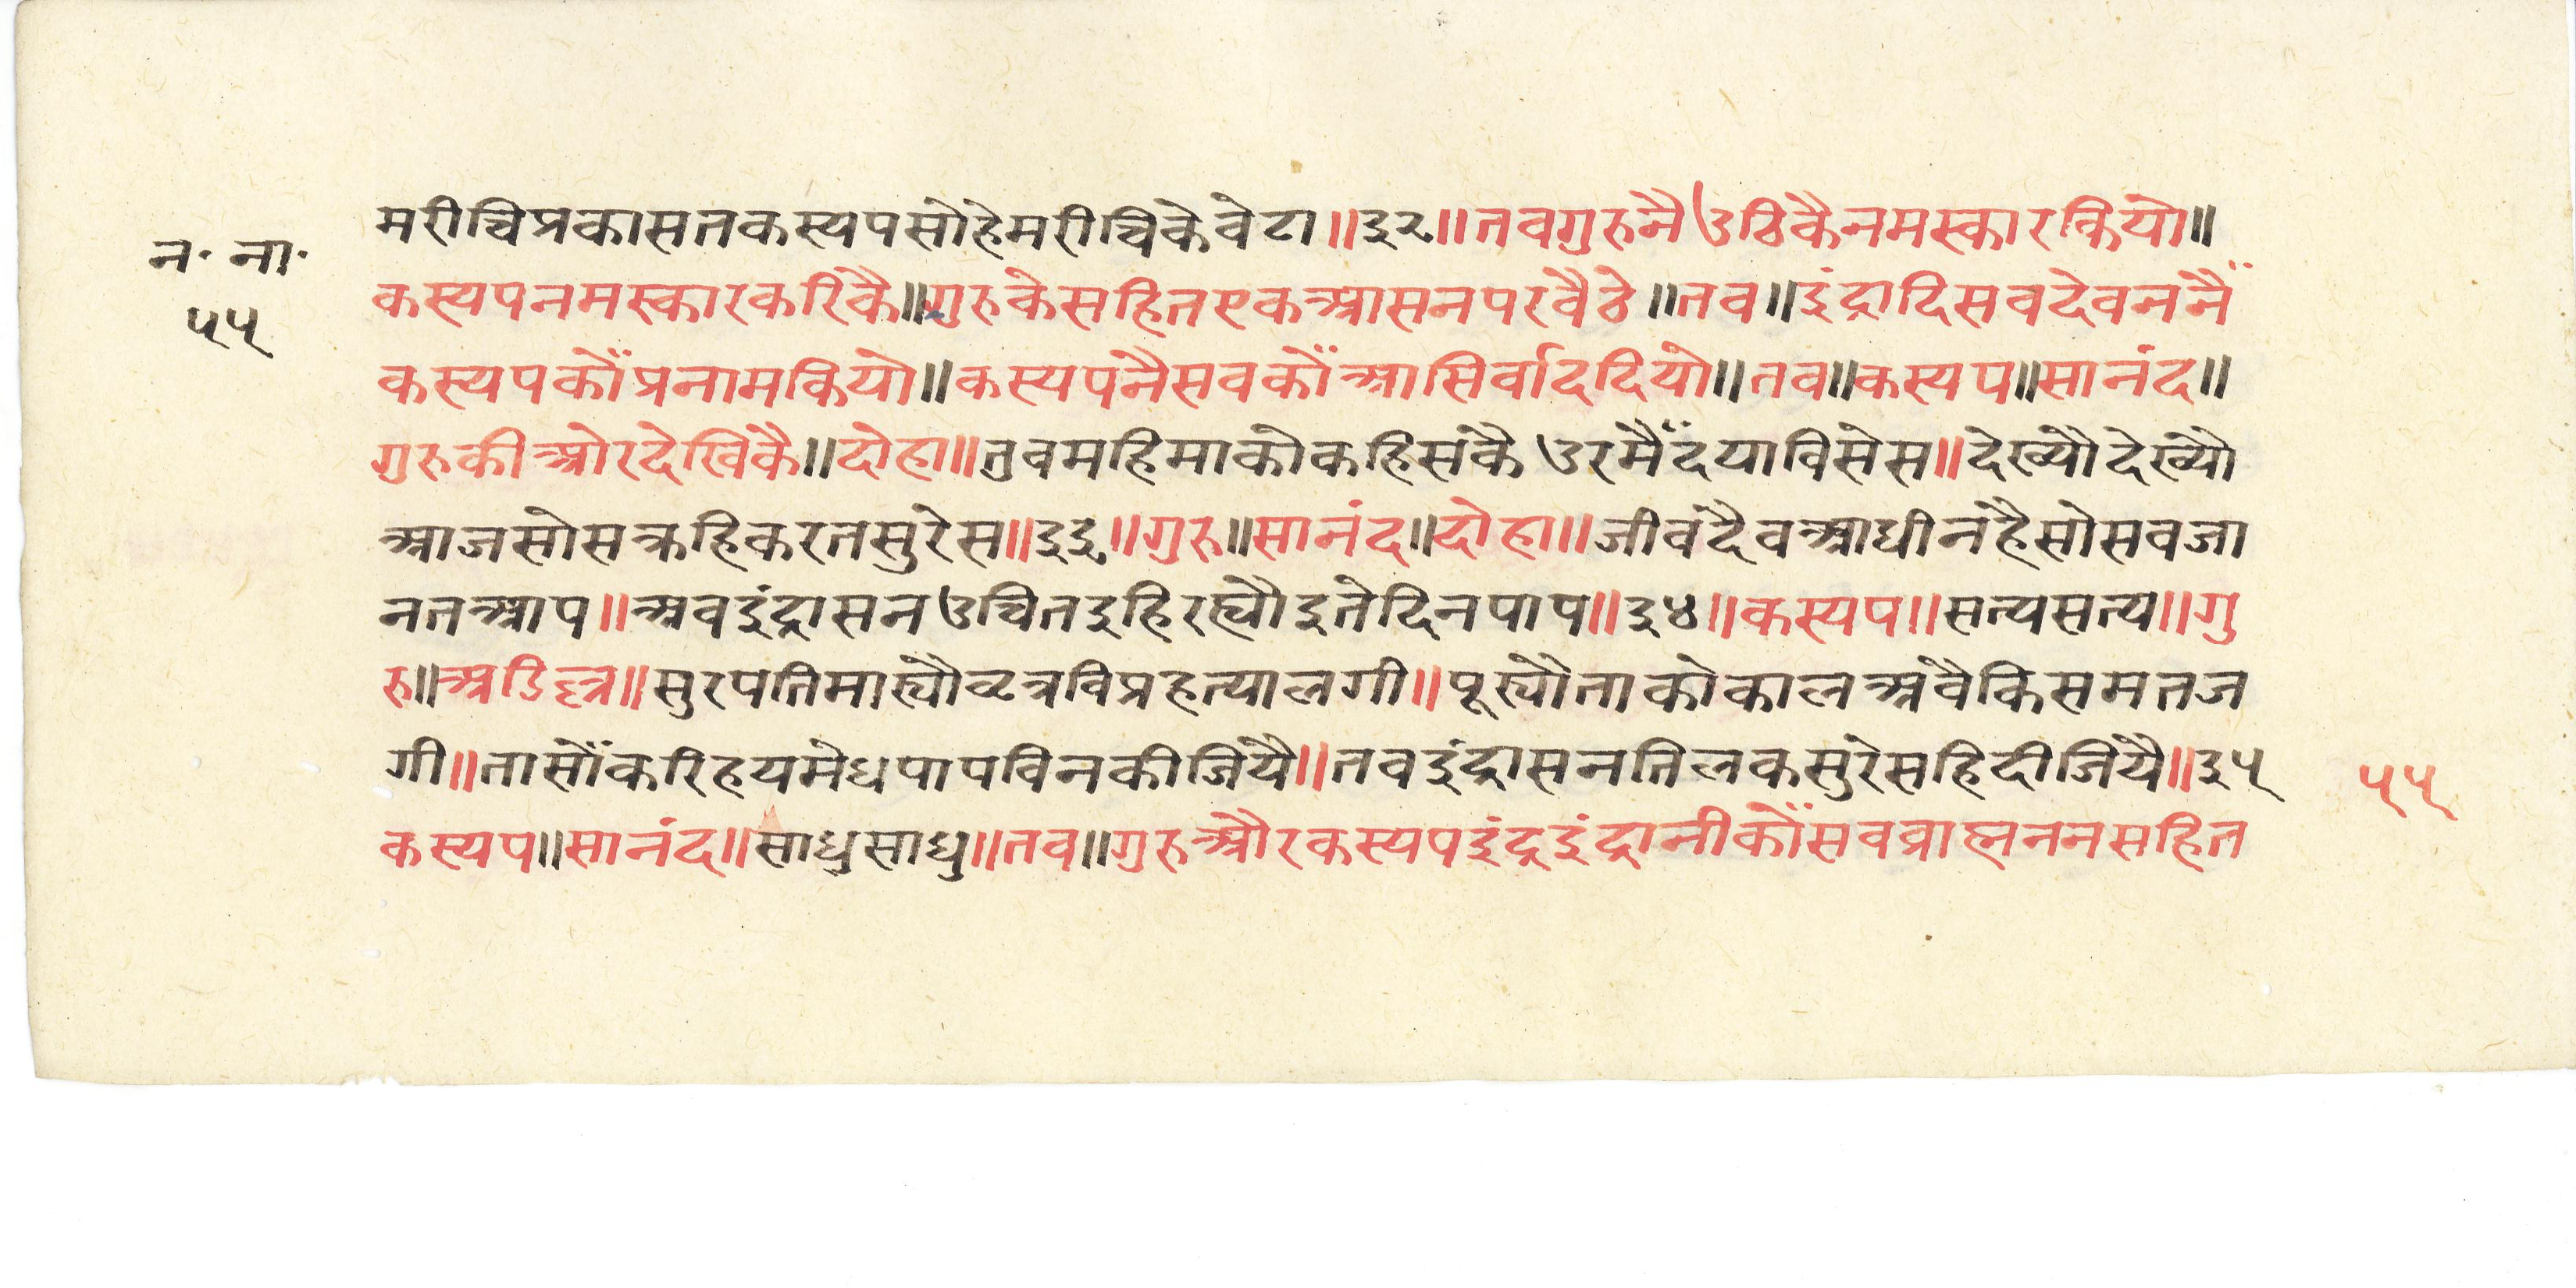 मरीचिप्रकासतकस्यपसोहेमरीचिकेवेटा॥३२॥तवगुरुनैउठिकैनमस्कारकियो॥
न॰ ना॰
५५
कस्यपनमस्कारकरिकै॥गुरुकेसहितएकआसनपरवैठे॥तव॥इंद्रादिसवदेवननैं
कस्यपकौंप्रनामकियो॥कस्यपनैसवकौंआसिर्वाददियो॥तव॥कस्यप॥सानंद॥
गुरुकीओरदेखिकै॥दोहा॥तुवमहिमाकोकहिसकै उरमैंदयाविसेस॥देख्यौदेख्यौ
आजसोसक्रहिकरतसुरेस॥३३॥गुरु॥सानंद॥दोहा॥जीवदैवआधीनहैसोसवजा
नतआप॥अवइंद्रासनउचितइहिरह्यौइतेदिनपाप॥३४॥कस्यप॥सत्यसत्य॥गु
रु॥अडिल्ल॥सुरपतिमार्यौव्रत्रविप्रहत्यालगी॥पूर्यौताकोकालअवैकिसमतज
गी॥तासौंकरिहयमेधपापविनकीजियै॥तवइंद्रासनतिलकसुरेसहिदीजियै॥३५
५५
कस्यप॥सानंद॥साधुसाधु॥तव॥गुरुऔरकस्यपइंद्रइंद्रानीकौंसवव्राह्मननसहित